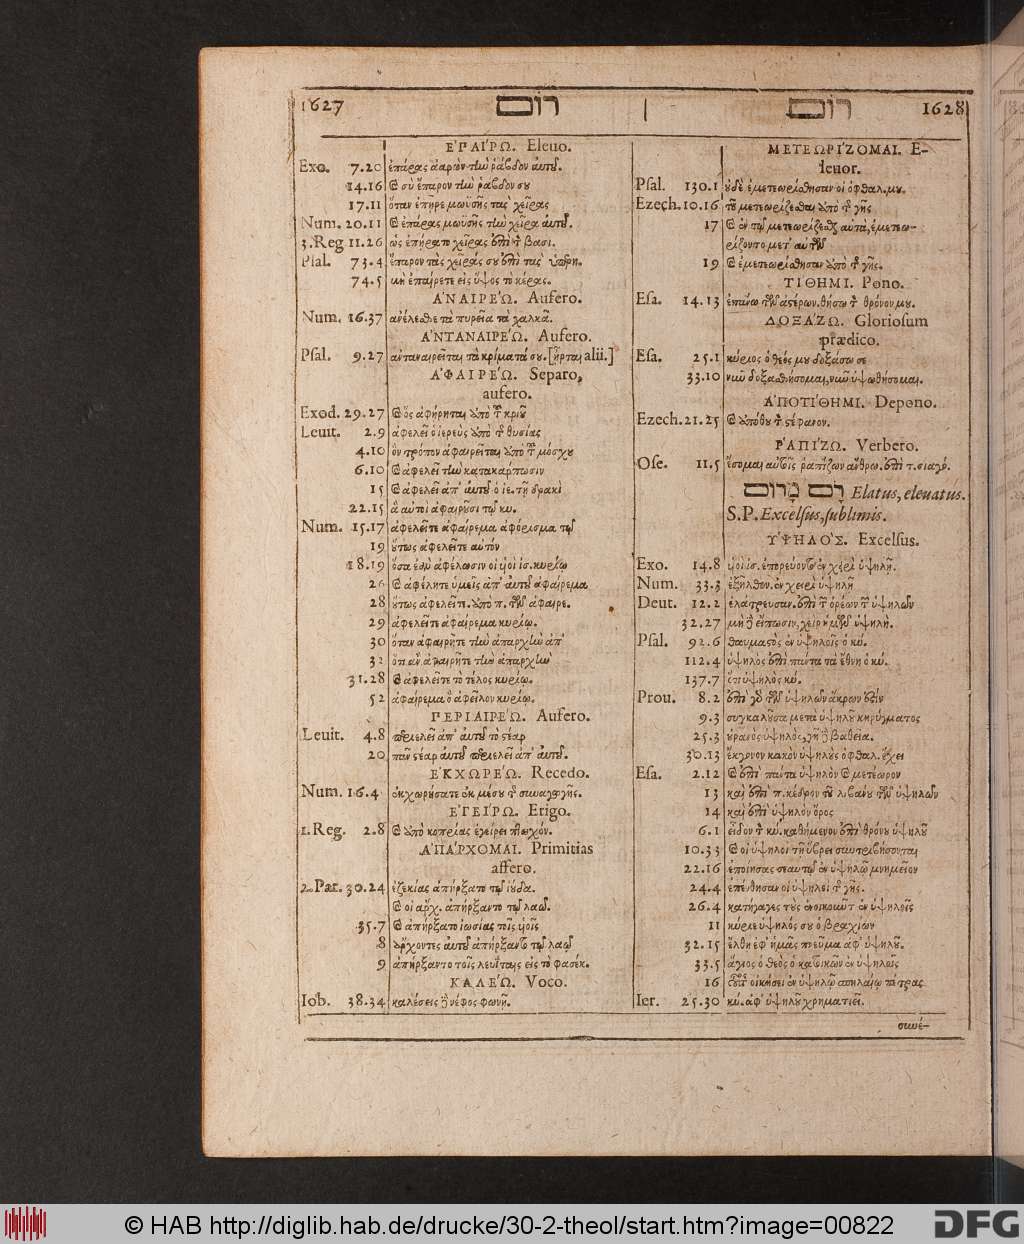 1627 רום
ἘΠΑΊΡΩ. Eleuo.
Exo. 7.20 ἐπάρας ἀαρὼν τὴν ῥάβδον αὐτοῦ.
14.16 καὶ σὺ ἔπαρον τὴν ῥάβδον σου
17.11 ὅταν ἐπῆρε μωϋσῆς τὰς χεῖρας
Num. 20.11 καὶ ἐπάρας μωϋσῆς τὴν χεῖρα αὐτοῦ.
3.Reg. 11.26 ὡς ἐπήρατο χεῖρας ἐπὶ τ βασι.
Psal. 73.4 ἔπαρον τὰς χεῖρας σου ἐπὶ τὰς ὑπερη.
74.5 μὴ ἐπαίρετε εἰς ὕψος τὸ κέρας.
ἈΝΑΙΡΕ΄Ω. Aufero.
Num. 16.37 ἀνέλεσθε τὰ πυρεῖα τὰ χαλκᾶ.
ἈΝΤΑΝΑΙΡΕ΄Ω. Aufero.
Psal. 9.27 ἀνταναιρεῖται τὰ κρίματά σου. [ᾖρται alii.]
ἈΦΑΙΡΕ΄Ω. Separo,
aufero.
Exod. 29.27 καὶ ὃς ἀφήρηται ἀπὸ τοῦ κριοῦ
Leuit. 2.9 ἀφελεῖ ὁ ἱερεὺς ἀπὸ τῆς θυσίας
4.10 ὃν τρόπον ἀφαιρεῖται ἀπὸ τοῦ μόσχου
6.10 καὶ ἀφελεῖ τὴν κατακάρπωσιν
15 καὶ ἀφελεῖ ἀπ' αὐτοῦ ὁ ἱε. τῇ δρακὶ
22.15 ἃ αὐτοὶ ἀφαιροῦσι τῷ κυ.
Num. 15.17 ἀφελεῖτε ἀφαίρεμα ἀφόρισμα τῷ
19 οὕτως ἀφελεῖτε αὐτόν
18.19 ὅσα ἐὰν ἀφέλωσιν οἱ υἱοὶ ἰσ. κυρίῳ
26 καὶ ἀφέλητε ὑμεῖς ἀπ' αὐτοῦ ἀφαίρεμα
28 οὕτως ἀφελεῖτ. ἀπὸ π. τῶν ἀφαιρε.
29 ἀφελεῖτε ἀφαίρεμα κυρίῳ.
30 ὅταν ἀφαιρῆτε τὴν ἀπαρχὴν ἀπ'
32 ὅτι ἂν ἀφαιρῆτε τὴν ἀπαρχὴν
31.28 καὶ ἀφελεῖτε τὸ τέλος κυρίῳ.
52 ἀφαίρεμα ὃ ἀφεῖλον κυρίῳ.
ΠΕΡΙΑΙΡΕ΄Ω. Aufero.
Leuit. 4.8 περιελεῖ ἀπ' αὐτοῦ τὸ στέαρ
20 πᾶν στέαρ αὐτοῦ περιελεῖ ἀπ' αὐτοῦ.
ἘΚΧΩΡΕ΄Ω. Recedo.
Num. 16.4 ἐκχωρήσατε ἐκ μέσου τ συναγωγῆς.
ἘΓΕΙ΄ΡΩ. Erigo.
1.Reg. 2.8 καὶ ἀπὸ κοπρίας ἐγείρει πτωχόν.
ἈΠΑ΄ΡΧΟΜΑΙ. Primitias
affero.
2.Par. 30.24 ἐζεκίας ἀπήρξατο τῷ ἰούδα.
καὶ οἱ ἄρχ. ἀπήρξαντο τῷ λαῷ.
35.7 καὶ ἀπήρξατο ἰωσίας τοῖς υἱοῖς
8 ἄρχοντες αὐτοῦ ἀπήρξαντο τῷ λαῷ
9 ἀπήρξαντο τοῖς λευΐταις εἰς τὸ φασέκ.
ΚΑΛΕ΄Ω. Voco.
Iob. 38.34 καλέσεις δὲ νέφος φωνῇ.
רום 1628
ΜΕΤΕΩΡΙ΄ΖΟΜΑΙ. E-
leuor.
Psal. 130.1 οὐδὲ ἐμετεωρίσθησαν οἱ ὀφθαλ. μου.
Ezech. 10.16 τοῦ μετεωρίζεσθαι ἀπὸ τ γῆς
17 καὶ ἐν τῷ μετεωρίζεσθαι αὐτὰ, ἐμετεω-
ρίζοντο μετ' αὐτῶν
19 καὶ ἐμετεωρίσθησαν ἀπὸ τ γῆς.
ΤΙ΄ΘΗΜΙ. Pono.
Esa. 14.13 ἐπάνω τῶν ἀστέρων. θήσω τ θρόνον μου.
ΔΟΞΑ΄ΖΩ. Gloriosum
prædico.
Esa. 25.1 κύριος ὁ θεός μου δοξάσω σε
33.10 νῦν δοξασθήσομαι, νῦν ὑψωθήσομαι.
ἈΠΟΤΙ΄ΘΗΜΙ. Depono.
Ezech. 21.25 καὶ ἀπόθου τ στέφανον.
ῬΑΠΙ΄ΖΩ. Verbero.
Ose. 11.5 ἔσομαι αὐτοῖς ῥαπίζων ἄνθρω. ἐπὶ τ. σιαγό.
רָם מָרוֹם Elatus, eleuatus.
S.P. Excelsus, sublimis.
ὙΨΗΛΟ΄Σ. Excelsus.
Exo. 14.8 υἱοὶ ἰσ. ἐπορεύοντο ἐν χειρὶ ὑψηλῇ.
Num. 33.3 ἐξῆλθον. ἐν χειρὶ ὑψηλῇ
Deut. 12.2 ἐλάτρευσαν. ἐπὶ τῶν ὀρέων τῶν ὑψηλῶν
32.27 μὴ δὲ εἴπωσιν, χεὶρ ἡμῶν ὑψηλὴ.
Psal. 92.6 θαυμαστὸς ἐν ὑψηλοῖς ὁ κύ.
112.4 ὑψηλὸς ἐπὶ πάντα τὰ ἔθνη ὁ κύ.
137.7 ὅτι ὑψηλὸς κύ.
Prou. 8.2 ἐπὶ γὰρ τῶν ὑψηλῶν ἄκρων ἐστίν
9.3 συγκαλοῦσα μετὰ ὑψηλοῦ κηρύγματος
25.3 οὐρανὸς ὑψηλὸς, γῆ δὲ βαθεῖα.
30.13 ἔκγονον κακὸν ὑψηλοὺς ὀφθαλ. ἔχει
Esa. 2.12 καὶ ἐπὶ πάντα ὑψηλὸν καὶ μετέωρον
13 καὶ ἐπὶ π. κέδρον τοῦ λιβάνου τῶν ὑψηλῶν
14 καὶ ἐπὶ ὑψηλὸν ὄρος
6.1 εἶδον τ κύ. καθήμενον ἐπὶ θρόνου ὑψηλοῦ
10.33 καὶ οἱ ὑψηλοὶ τῇ ὕβρει συντριβήσονται
22.16 ἐποίησας σεαυτῷ ἐν ὑψηλῷ μνημεῖον
24.4 ἐπένθησαν οἱ ὑψηλοὶ τ γῆς.
26.4 κατήγαγες τοὺς ἐνοικοῦντ. ἐν ὑψηλοῖς
11 κύριε ὑψηλός σου ὁ βραχίων
32.15 ἔλθῃ ἐφ' ἡμᾶς πνεῦμα ἀφ' ὑψηλοῦ.
33.5 ἅγιος ὁ θεὸς ὁ κατοικῶν ἐν ὑψηλοῖς
16 οὗτος οἰκήσει ἐν ὑψηλῷ σπηλαίῳ πέτρας
Ier. 25.30 κύ. ἀφ' ὑψηλοῦ χρηματιεῖ.
συνέ-
© HAB http://diglib.hab.de/drucke/30-2-theol/start.htm?image=00822
DFG